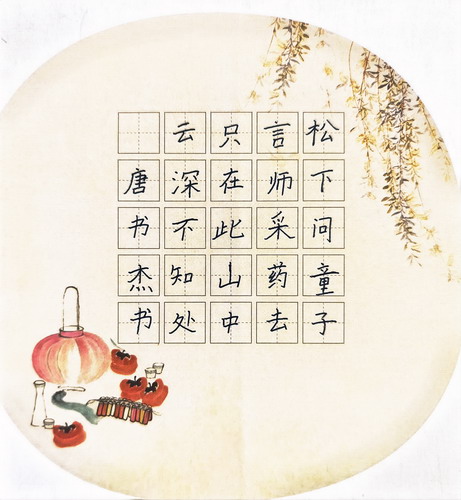 松下问童子
言师采药去
只在此山中
云深不知处
唐书杰书